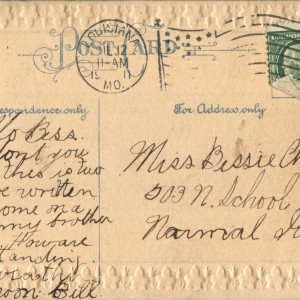 POST CARD
LOUISIANA
JUL 12
11-AM
19 11
MO.
respondence only
For Address only
o Bess.
dont you
this is two
ve written
ome on a
my brother
How are
tanding
this
oon Bill
Miss Bessie
503 N. School
Normal